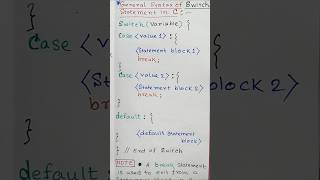 General Syntax of Switch
Statement in C :-
Switch (Variable) {
Case <value 1> : {
<Statement block 1>
break;
}
Case <value 2> : {
<Statement block 2>
break;
}
default : {
<default statement
block>
}
} // End of Switch
NOTE ● A Break Statement
is used to exit from a